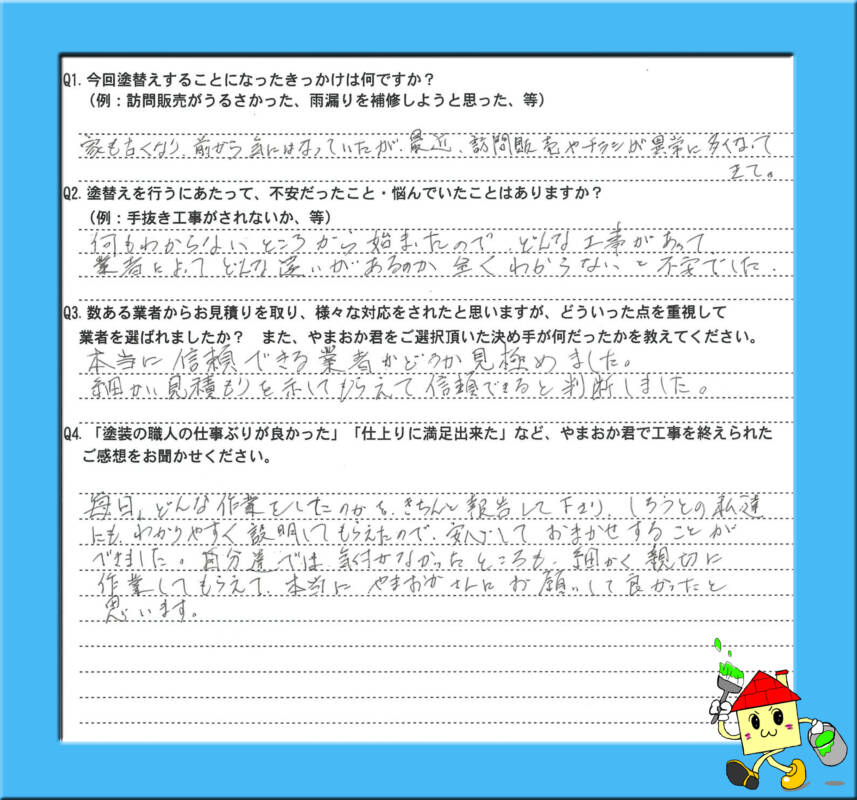 Q1. 今回塗替えすることになったきっかけは何ですか？
（例：訪問販売がうるさかった、雨漏りを補修しようと思った、等）
家も古くなり、前から気にはなっていたが、最近、訪問販売やチラシが異常に多くなって
きて。
Q2. 塗替えを行うにあたって、不安だったこと・悩んでいたことはありますか？
（例：手抜き工事がされないか、等）
何もわからないところから始まったので、どんな工事があって
業者によってどんな違いがあるのか全くわからないと不安でした。
Q3. 数ある業者からお見積りを取り、様々な対応をされたと思いますが、どういった点を重視して
業者を選ばれましたか？　また、やまおか君をご選択頂いた決め手が何だったかを教えてください。
本当に信頼できる業者かどうか見極めました。
細かい見積もりを示してもらえて信頼できると判断しました。
Q4. 「塗装の職人の仕事ぶりが良かった」「仕上りに満足出来た」など、やまおか君で工事を終えられた
ご感想をお聞かせください。
毎日、どんな作業をしたのかを、きちんと報告して下さり、しろうとの私達
にも、わかりやすく説明してもらえたので、安心しておまかせすることが
できました。自分達では気付かなかったところも、細かく親切に
作業してもらえて、本当にやまおかさんにお願いして良かったと
思います。